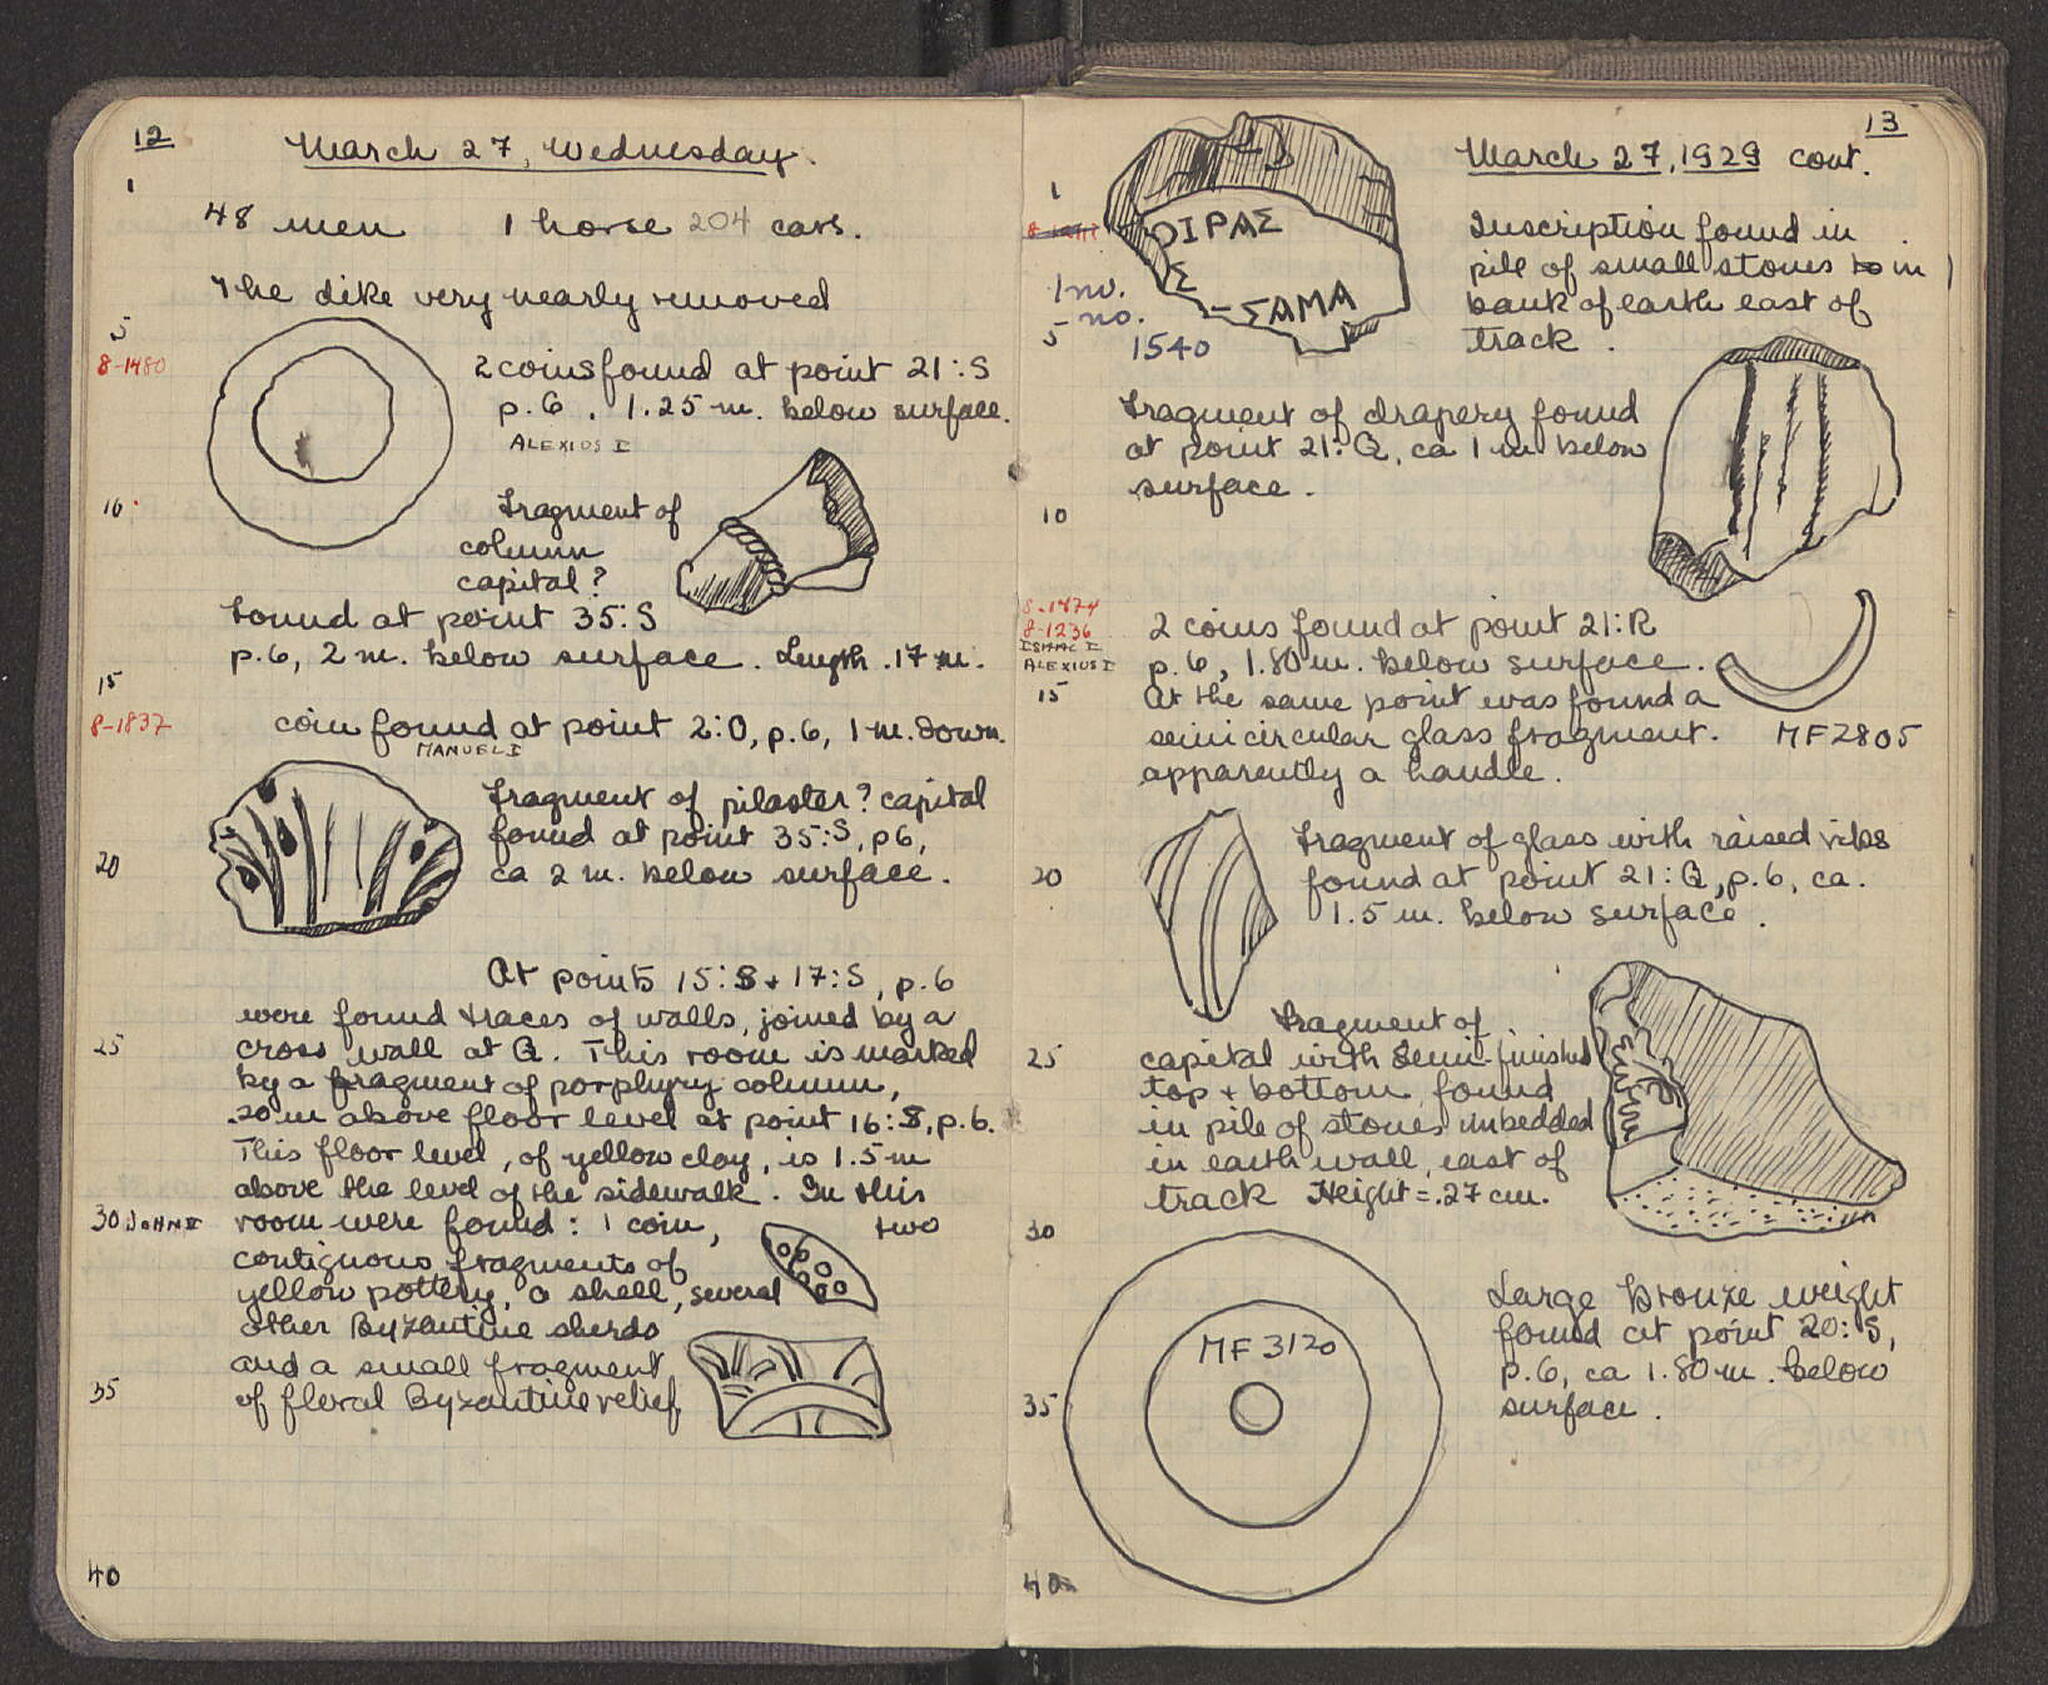 12
March 27, Wednesday.
1
48 men 1 horse 204 cars.
The dike very nearly removed
5
8-1480
2 coins found at point 21:S
p.6, 1.25 m. below surface.
ALEXIUS I
10
Fragment of
column
capital?
Found at point 35:S
p.6, 2 m. below surface. Length .17 m.
15
8-1837
coin found at point 2:O, p.6, 1 m. down.
MANUEL I
Fragment of pilaster? capital
found at point 35:S, p6,
20
ca 2 m. below surface.
At points 15:S + 17:S, p.6
were found traces of walls, joined by a
25
cross wall at Q. This room is marked
by a fragment of porphyry column,
.20 m above floor level at point 16:S, p.6.
This floor level, of yellow clay, is 1.5 m
above the level of the sidewalk. In this
30 JOHN II
room were found: 1 coin, two
contiguous fragments of
yellow pottery, a shell, several
other Byzantine sherds
and a small fragment
35
of floral Byzantine relief
40
13
March 27, 1929 cont.
1
ΟΙΡΑΣ
Σ
-ΣΑΜΑ
Inv.
no.
1540
5
Inscription found in
pile of small stones in
bank of earth east of
track.
Fragment of drapery found
at point 21:Q, ca 1 m below
surface.
10
8-1474
8-1236
ISAAC I
ALEXIUS I
2 coins found at point 21:R
p.6, 1.80 m. below surface.
15
At the same point was found a
semicircular glass fragment.
apparently a handle.
MF2805
Fragment of glass with raised ribs
20
found at point 21:Q, p.6, ca.
1.5 m. below surface.
Fragment of
25
capital with semi-finished
top + bottom, found
in pile of stones imbedded
in earth wall, east of
track Height = .27 cm.
30
MF 3120
Large bronze weight
found at point 20:S,
p.6, ca 1.80 m. below
35
surface.
40